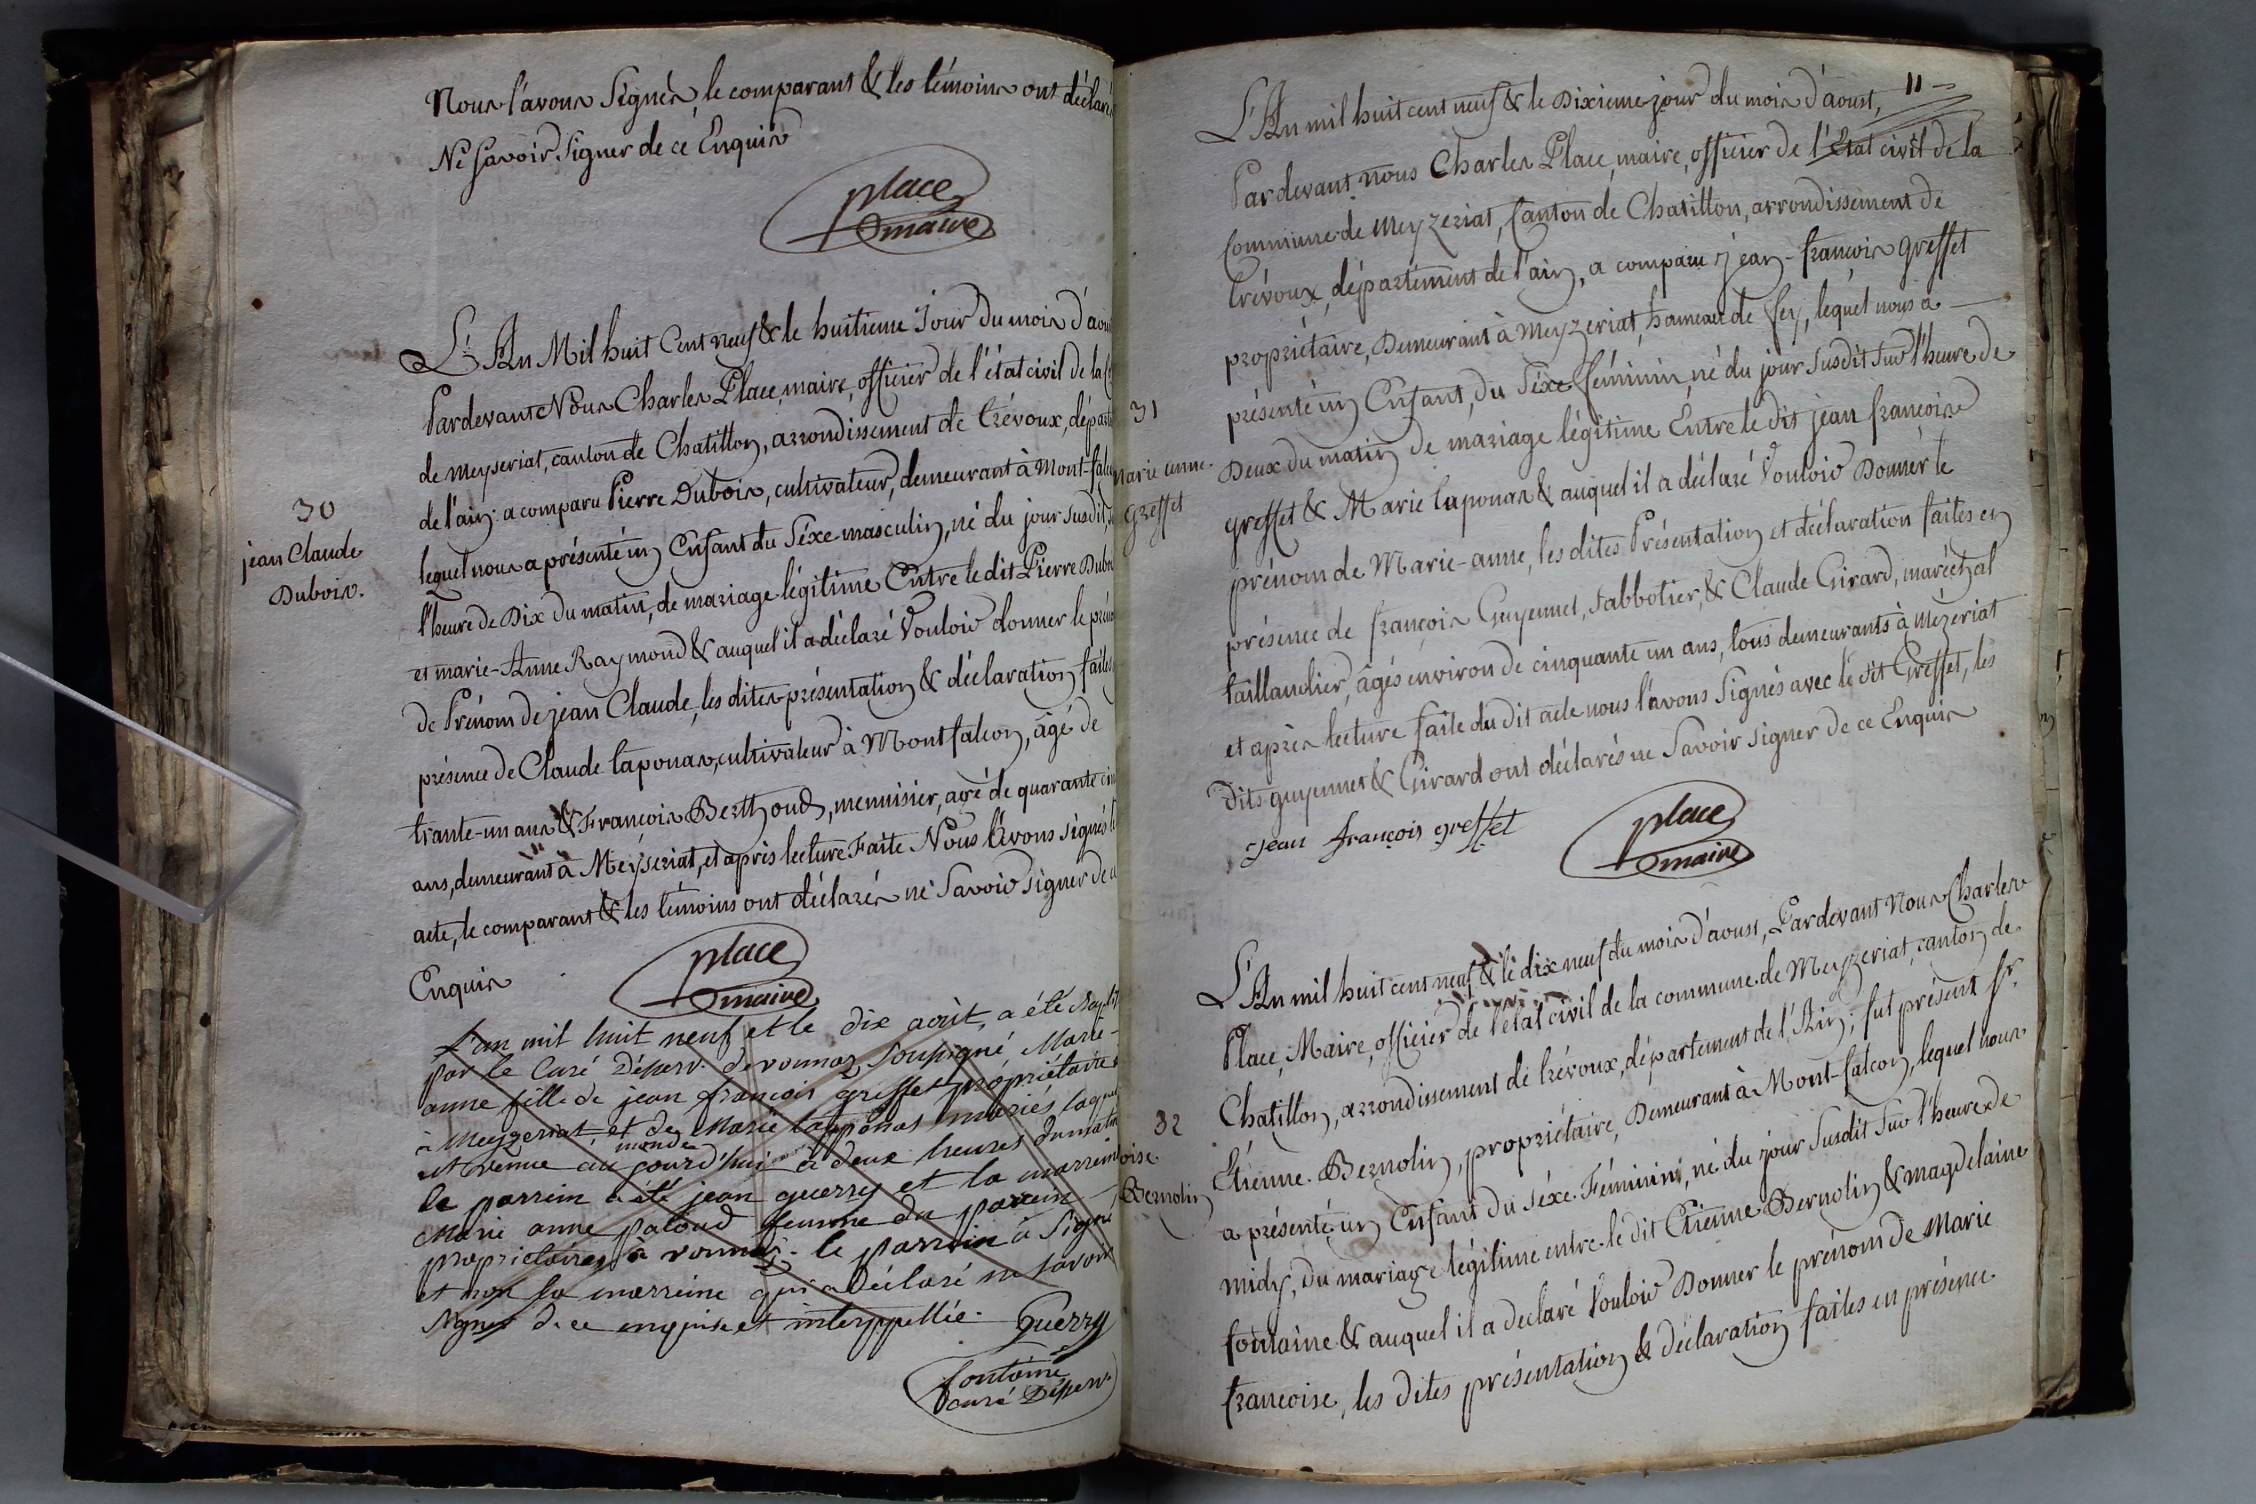 Nous l'avons Signés, le comparant & les témoins ont déclaré
Ne Savoir Signer de ce Enquis
place
maire
L'An Mil huit Cent neuf & le huitieme Jour du mois d'aou
Pardevant Nous Charles Place, maire, officier de l'état civil de la
de meyseriat, canton de Chatillon, arrondissement de trévoux, départe
de l'ain: a comparu Pierre Dubois, cultivateur, demeurant à Mont-falc
30
jean Claude
Dubois.
lequel nous a présenté un Enfant du Séxe masculin, né du jour susdit,
l'heure de Dix du matin, de mariage légitime Entre le dit Pierre Dubo
et marie-Anne Raymond & auquel il a déclaré Vouloir donner le préno
de Prénom de jean Claude, les dites présentation & déclaration faites
présence de Claude laponas, cultivateur à Montfalcon, âgé de
trante-un ans & François Berthoud, menuisier, agé de quarante cin
ans, demeurant à Meyseriat, et après lecture Faite Nous l'avons signés le
acte, le comparant & les témoins ont déclarés ne Savoir signer de c
Enquis
place
maire
L'an mil huit neuf et le dix août, a été Bapti
par le Curé Désserv. de vonnaz Soussigné, Marie-
anne fille de jean françois greffet propriétaire
à Meyzeriat et de Marie lapponas mariés laque
est venue au monde jourd'hui à deux heures du matin
le parrein a été jean guerry et la marreine
Marie anne paloud femme du parein
propriétaires à vonnaz. le parrein a Signé
et non la marreine qui a déclaré ne savoir
signer de ce enquise et interppellée. Guerry
fontaine
curé Désserv.
11
L'An mil huit cent neuf & le Dixieme jour du mois d'aoust,
Pardevant nous Charles Place, maire, officier de l'Etat civil de la
Commune de Meyzeriat, Canton de Chatillon, arrondissement de
trévoux, département de l'ain, a comparu jean-françois greffet
propriétaire, Demeurant à Meyzeriat, hameau de fey, lequel nous a
31
marie anne
greffet
présenté un Enfant, du Séxe féminin, né du jour Susdit Sur l'heure de
Deux du matin de mariage légitime Entre le dit jean françois
greffet & Marie laponas & auquel il a déclaré Vouloir Donner le
prénom de Marie-anne, les dites Présentation et déclaration faites en
présence de françois Guyennet, Sabbotier, & Claude Girard, maréchal
taillandier, âgés environ de cinquante un ans, tous demeurants à Mézeriat
et après lecture faite du dit acte nous l'avons Signés avec le dit Greffet, les
Dits guyennet & Girard ont déclarés ne Savoir signer de ce Enquis
jean françois greffet
place
maire
L'An mil huit cent neuf & le dix neuf du mois d'aoust, Pardevant Nous Charles
Place, Maire, officier de l'état civil de la commune de Meyzeriat, canton de
Chatillon, arrondissement de trévoux, département de l'Ain; fut présent Sr.
32
oise
Bernolin
Etienne Bernolin, propriétaire, Demeurant à Mont-falcon, lequel nous
a présenté un Enfant du Séxe Féminin, né du jour Susdit Sur l'heure de
midy, Du mariage légitime entre le dit Etienne Bernolin & magdelaine
fontaine & auquel il a declaré Vouloir Donner le prénom de Marie
francoise, les dites présentation & déclaration faites en présence